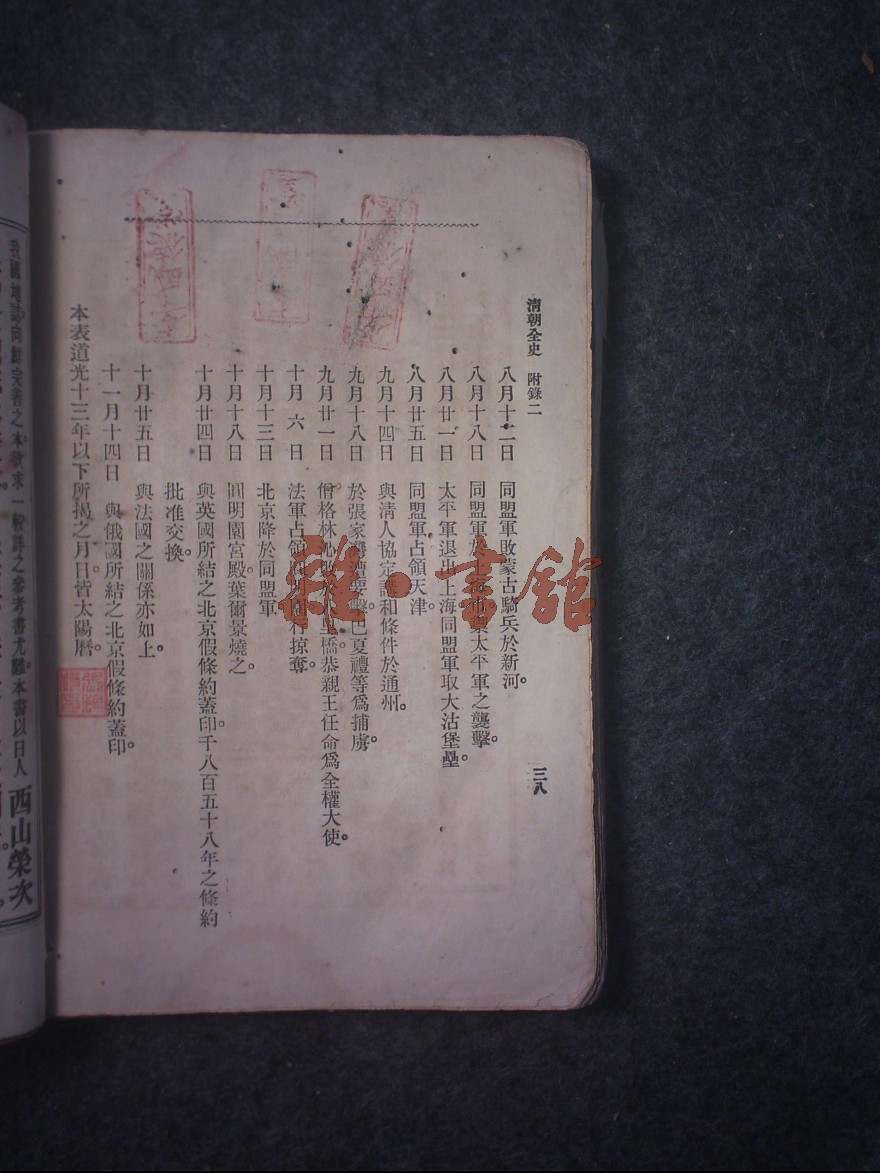 清朝全史 附錄二
三八
八月十二日 同盟軍敗蒙古騎兵於新河。
八月十八日 同盟軍於上海 太平軍之襲擊。
八月廿一日 太平軍退出上海同盟軍取大沽堡壘。
八月廿五日 同盟軍占領天津。
九月十四日 與清人協定 和條件於通州。
九月十八日 於張家灣遭要擊巴夏禮等爲捕虜。
九月廿一日 僧格林沁 橋恭親王任命爲全權大使。
十月六日 法軍占領 掠奪。
十月十三日 北京降於同盟軍
十月十八日 圓明園宮殿葉爾景燒之。
十月廿四日 與英國所結之北京假條約蓋印。千八百五十八年之條約
批准交換。
十月廿五日 與法國之關係亦如上。
十一月十四日 與俄國所結之北京假條約蓋印。
本表道光十三年以下所揭之月日皆太陽曆。
雅·書館
我國地誌向鮮完善之本欲求一較詳之參考書尤難本書以日人西山榮次